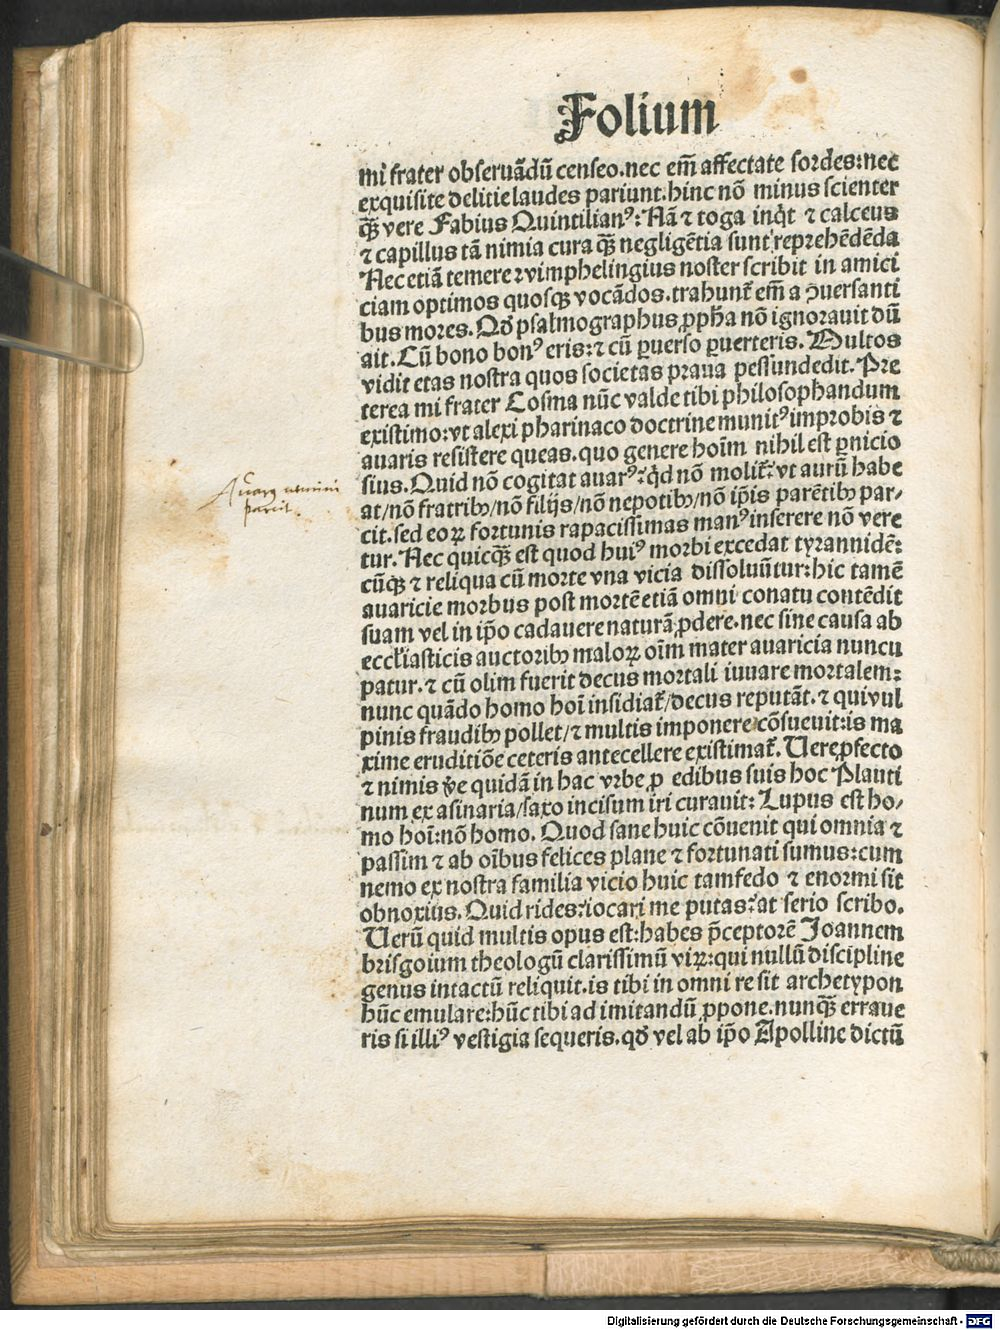 Folium
mi frater obseruādū censeo.nec em̄ affectate sordes:nec
exquisite delitie laudes pariunt.hinc nō minus scienter
q̄ꝫ vere Fabius Quintilianꝰ:Nā ⁊ toga inq̄t ⁊ calceus
⁊ capillus tā nimia cura q̄ꝫ negligētia sunt reprehēdēda
Nec etiā temere vvimphelingius noster scribit in amici
ciam optimos quosqꝫ vocādos.trahunt᷑ em̄ a ꝯuersanti
bus mores. Qđ psalmographus ꝓph̄a nō ignorauit dū
ait. Cū bono bonꝰ eris:⁊ cū ꝑuerso ꝑuerteris. Multos
vidit etas nostra quos societas praua pessundedit. Pre
terea mi frater Cosma nūc valde tibi philosophandum
existimo:vt alexi pharmaco doctrine munitꝰ improbis ⁊
auaris resistere queas.quo genere hoīm nihil est ꝑnicio
sius. Quid nō cogitat auarꝰ:q̇d nō molit᷑:vt aurū habe
at/nō fratribꝫ/nō filijs/nō nepotibꝫ/nō ip̄is parētibꝫ par/
cit.sed eoꝝ fortunis rapacissimas manꝰ inserere nō vere
tur. Nec quicq̄ꝫ est quod huiꝰ morbi excedat tyrannidē:
cūqꝫ ⁊ reliqua cū morte vna vicia dissoluūtur:hic tamē
auaricie morbus post mortē etiā omni conatu contēdit
suam vel in ip̄o cadauere naturā ꝓdere.nec sine causa ab
eccl̄iasticis auctoribꝫ maloꝝ oīm mater auaricia nuncu
patur.⁊ cū olim fuerit decus mortali iuuare mortalem:
nunc quādo homo hoī insidiat᷑/decus reputāt.⁊ qui vul
pinis fraudibꝫ pollet/⁊ multis imponere cōsueuit:is ma
xime eruditiōe ceteris antecellere existimat᷑. Uere ꝓfecto
⁊ nimis v̄e quidā in hac vrbe ꝓ edibus suis hoc Plauti
num ex asinaria/saxo incisum iri curauit: Lupus est ho/
mo hoī:nō homo. Quod sane huic cōuenit qui omnia ⁊
passim ⁊ ab oībus felices plane ⁊ fortunati sumus:cum
nemo ex nostra familia vicio huic tamfedo ⁊ enormi sit
obnoxius. Quid rides:iocari me putas:at serio scribo.
Uerū quid multis opus est:habes p̄ceptorē Joannem
brisgoium theologū clarissimū viꝝ:qui nullū discipline
genus intactū reliquit.is tibi in omni re sit archetypon
hūc emulare:hūc tibi ad imitandū ꝓpone.nunq̄ꝫ erraue
ris si illiꝰ vestigia sequeris.qđ vel ab ip̄o Apolline dictū
Auarꝰ nemini
parcit.
Digitalisierung gefördert durch die Deutsche Forschungsgemeinschaft - DFG